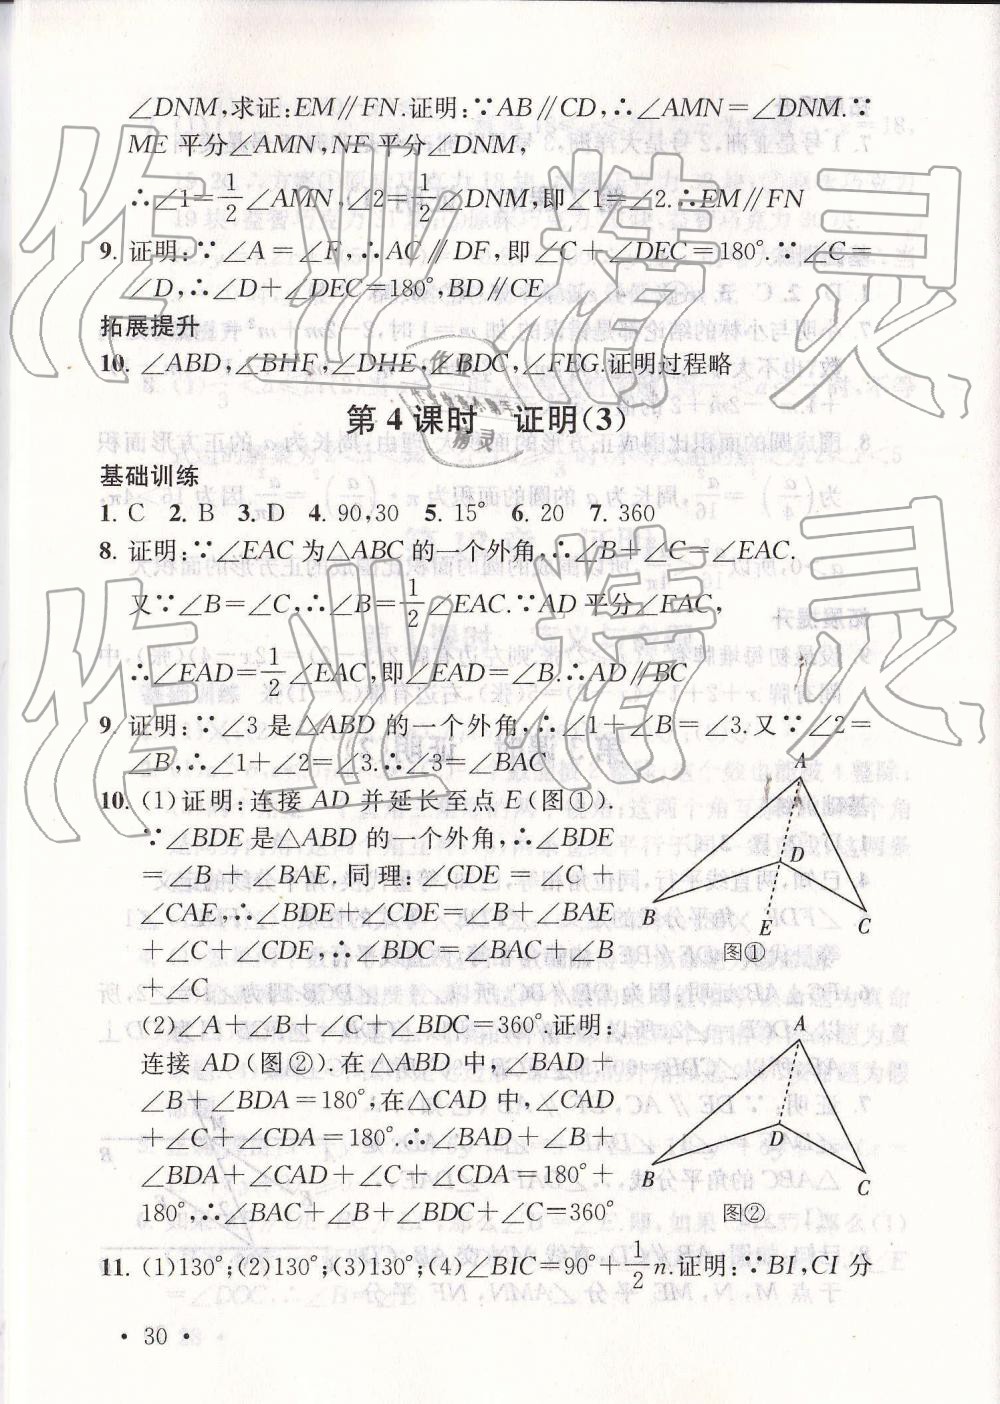 ∠DNM,求证:EM∥FN.证明:∵AB∥CD,∴∠AMN=∠DNM.∵
ME平分∠AMN,NF平分∠DNM,
∴∠1=1/2∠AMN,∠2=1/2∠DNM,即∠1=∠2.∴EM∥FN
9. 证明:∵∠A=∠F,∴AC∥DF,即∠C+∠DEC=180°.∵∠C=
∠D,∴∠D+∠DEC=180°,BD∥CE
拓展提升
10. ∠ABD,∠BHF,∠DHE,∠BDC,∠FEG.证明过程略
第4课时 证明(3)
基础训练
1. C 2. B 3. D 4. 90,30 5. 15° 6. 20 7. 360
8. 证明:∵∠EAC为△ABC的一个外角,∴∠B+∠C=∠EAC.
又∵∠B=∠C,∴∠B=1/2∠EAC.∵AD平分∠EAC,
∴∠EAD=1/2∠EAC,即∠EAD=∠B.∴AD∥BC
9. 证明:∵∠3是△ABD的一个外角,∴∠1+∠B=∠3.又∵∠2=
∠B,∴∠1+∠2=∠3.∴∠3=∠BAC
10. (1)证明:连接AD并延长至点E(图①).
∵∠BDE是△ABD的一个外角,∴∠BDE
=∠B+∠BAE.同理:∠CDE=∠C+
∠CAE,∴∠BDE+∠CDE=∠B+∠BAE
+∠C+∠CDE,∴∠BDC=∠BAC+∠B
+∠C
A
D
B
E
C
图①
(2)∠A+∠B+∠C+∠BDC=360°.证明:
连接AD(图②).在△ABD中,∠BAD+
∠B+∠BDA=180°,在△CAD中,∠CAD
+∠C+∠CDA=180°.∴∠BAD+∠B+
∠BDA+∠CAD+∠C+∠CDA=180°+
180°,∴∠BAC+∠B+∠BDC+∠C=360°
A
D
B
C
图②
11. (1)130°;(2)130°;(3)130°;(4)∠BIC=90°+1/2n.证明:∵BI,CI分
• 30 •
作业精灵
作业精灵